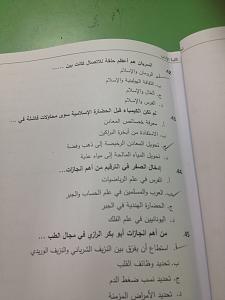 42. السريان هم أعظم حلقة للاتصال كانت بين ......
أ. الرومان والإسلام
ب. الثقافة الهيلينية والإسلام
ج. المغال والإسلام
د. الفرس والإسلام
43. لم تكن الكيمياء قبل الحضارة الإسلامية سوى محاولات فاشلة في ....
أ. معرفة خصائص المعادن
ب. الاستفادة من أبخرة البراكين
ج. تحويل المعادن الرخيصة إلى ذهب وفضة
د. تحويل المياه المالحة إلى مياه عذبة
44. إدخال الصفر في الترقيم من أهم إنجازات....
أ. الفرس في علم الرياضيات
ب. العرب والمسلمين في علم الحساب والجبر
ج. الحضارة الهندية في الجبر
د. اليونانيين في علم الفلك
45. من أهم انجازات أبو بكر الرازي في مجال الطب ...
أ. استطاع أن يفرق بين النزيف الشرياني والنزيف الوريدي
ب. تحديد وظائف القلب
ج. تحديد نسب ضغط الدم
د. تحديد الأمراض المزمنة